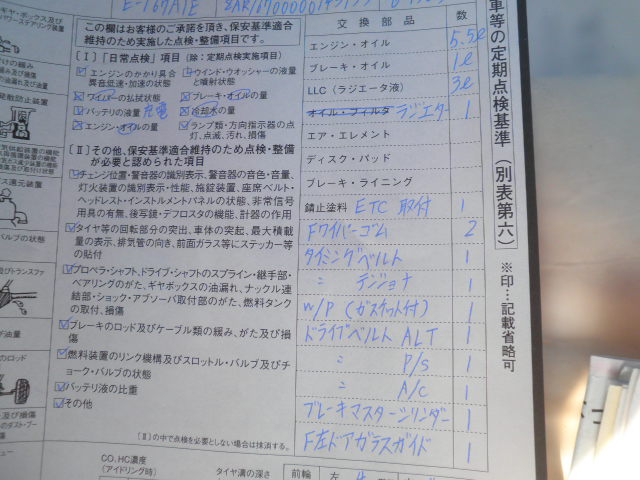 E-167A1E
この欄はお客様のご承諾を頂き、保安基準適合
維持のため実施した点検・整備項目です。
[Ⅰ]「日常点検」項目(除:定期点検実施項目)
エンジンのかかり具合
異音低速・加速の状態
ウインド・ウオッシャーの液量
と噴射状態
ワイパーの払拭状態
ブレーキ・オイルの量
バッテリの液量 充電
冷却水の量
エンジン・オイルの量
ランプ類・方向指示器の点
灯、点滅、汚れ、損傷
[Ⅱ]その他、保安基準適合維持のため点検・整備
が必要と認められた項目
チェンジ位置・警音器の識別表示、警音器の音色・音量、
灯火装置の識別表示・性能、施錠装置、座席ベルト・
ヘッドレスト・インストルメントパネルの状態、非常信号
用具の有無、後写鏡・デフロスタの機能、計器の作用
タイヤ等の回転部分の突出、車体の突起、最大積載
量の表示、排気管の向き、前面ガラス等にステッカー等
の貼付
プロペラ・シャフト、ドライブ・シャフトのスプライン・継手部・
ベアリングのがた、ギヤボックスの油漏れ、ナックル連
結部・ショック・アブソーバ取付部のがた、燃料タンク
の取付、損傷
ブレーキのロッド及びケーブル類の緩み、がた及び損
傷
燃料装置のリンク機構及びスロットル・バルブ及びチ
ョーク・バルブの状態
バッテリ液の比重
その他
(Ⅱ)の中で点検を必要としない場合は抹消する。
CO、HC濃度
(アイドリング時)
タイヤ溝の深さ
前輪
左
交換部品
数
エンジン・オイル 5.5ℓ
ブレーキ・オイル 1ℓ
LLC(ラジエータ液) 3ℓ
オイル・フィルタ ラジエタ 1
エア・エレメント
ディスク・パッド
ブレーキ・ライニング
錆止塗料 ETC 取付 1
Fワイパーゴム 2
タイミングベルト 1
〃 テンショナ 1
W/P(ガスケット付) 1
ドライブベルト ALT 1
〃 P/S 1
〃 A/C 1
ブレーキマスターシリンダー 1
F左ドアガラスガイド 1
車等の定期点検基準(別表第六)
※印…記載省略可